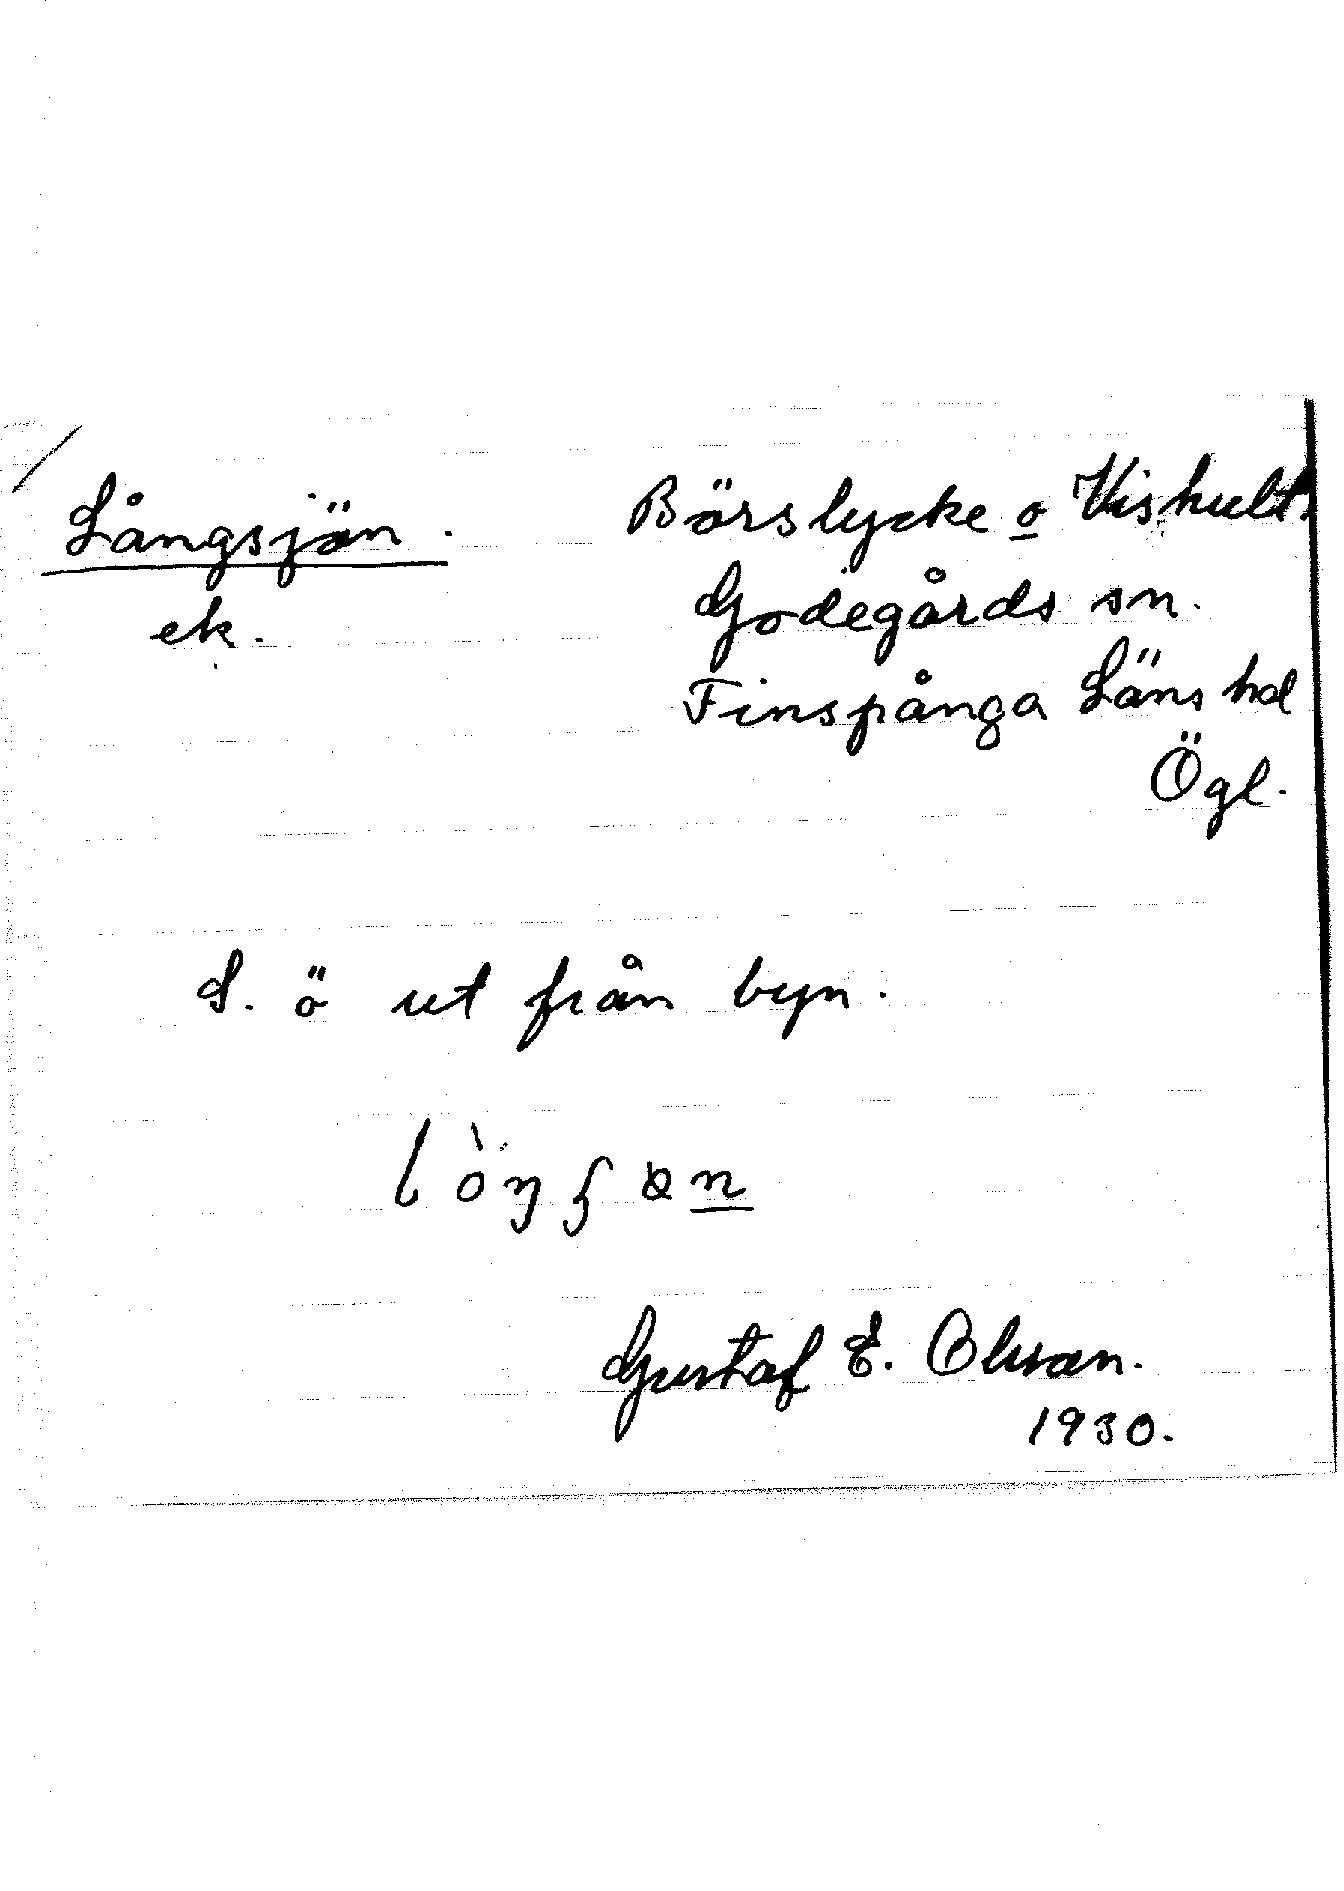 Långsjön.
ek.
Börslycke o Viskult.
Godegårds sn.
Finspånga Läns hd
Ögl.
S. ö ut från byn.
Gustaf E. Olsson.
1930.